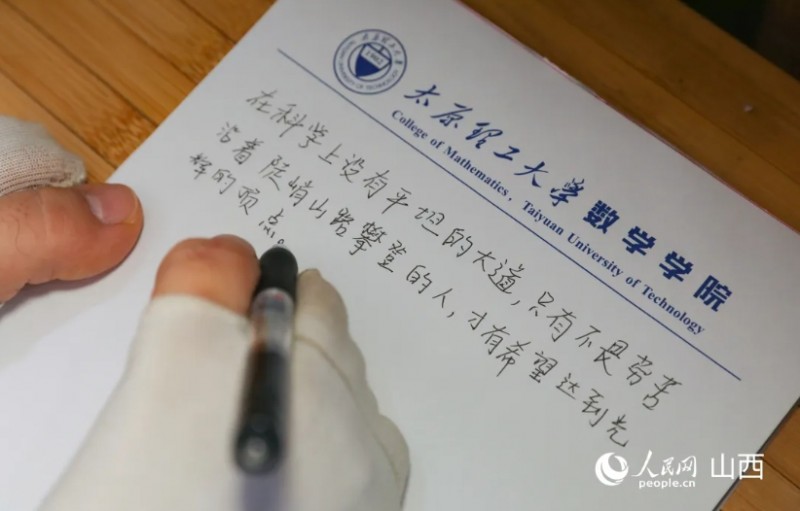 太原理工大学数学学院
College of Mathematics, Taiyuan University of Technology
在科学上没有平坦的大道,只有不畏劳苦
沿着陡峭山路攀登的人,才有希望达到光
辉的顶点。
人民网 山西
people.cn